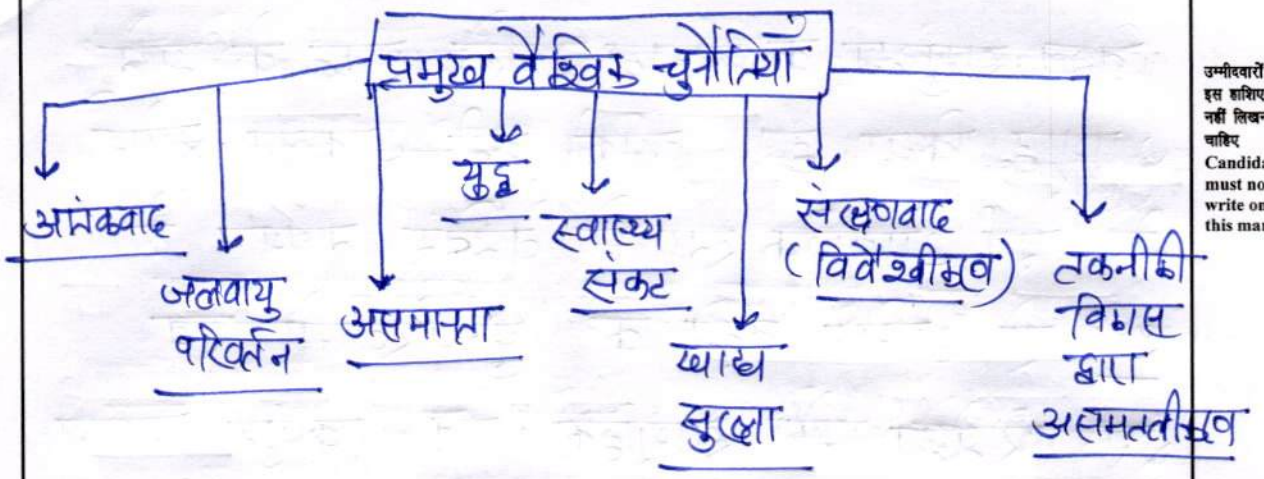 प्रमुख वैश्विक चुनौतियाँ
आतंकवाद
जलवायु
परिवर्तन
असमानता
युद्ध
स्वास्थ्य
संकट
खाद्य
सुरक्षा
संरक्षणवाद
(विवैश्वीकरण)
तकनीकी
विकास
द्वारा
उम्मीदवारों
इस हाशिए
नहीं लिखन
चाहिए
Candida
must no
write on
this mar